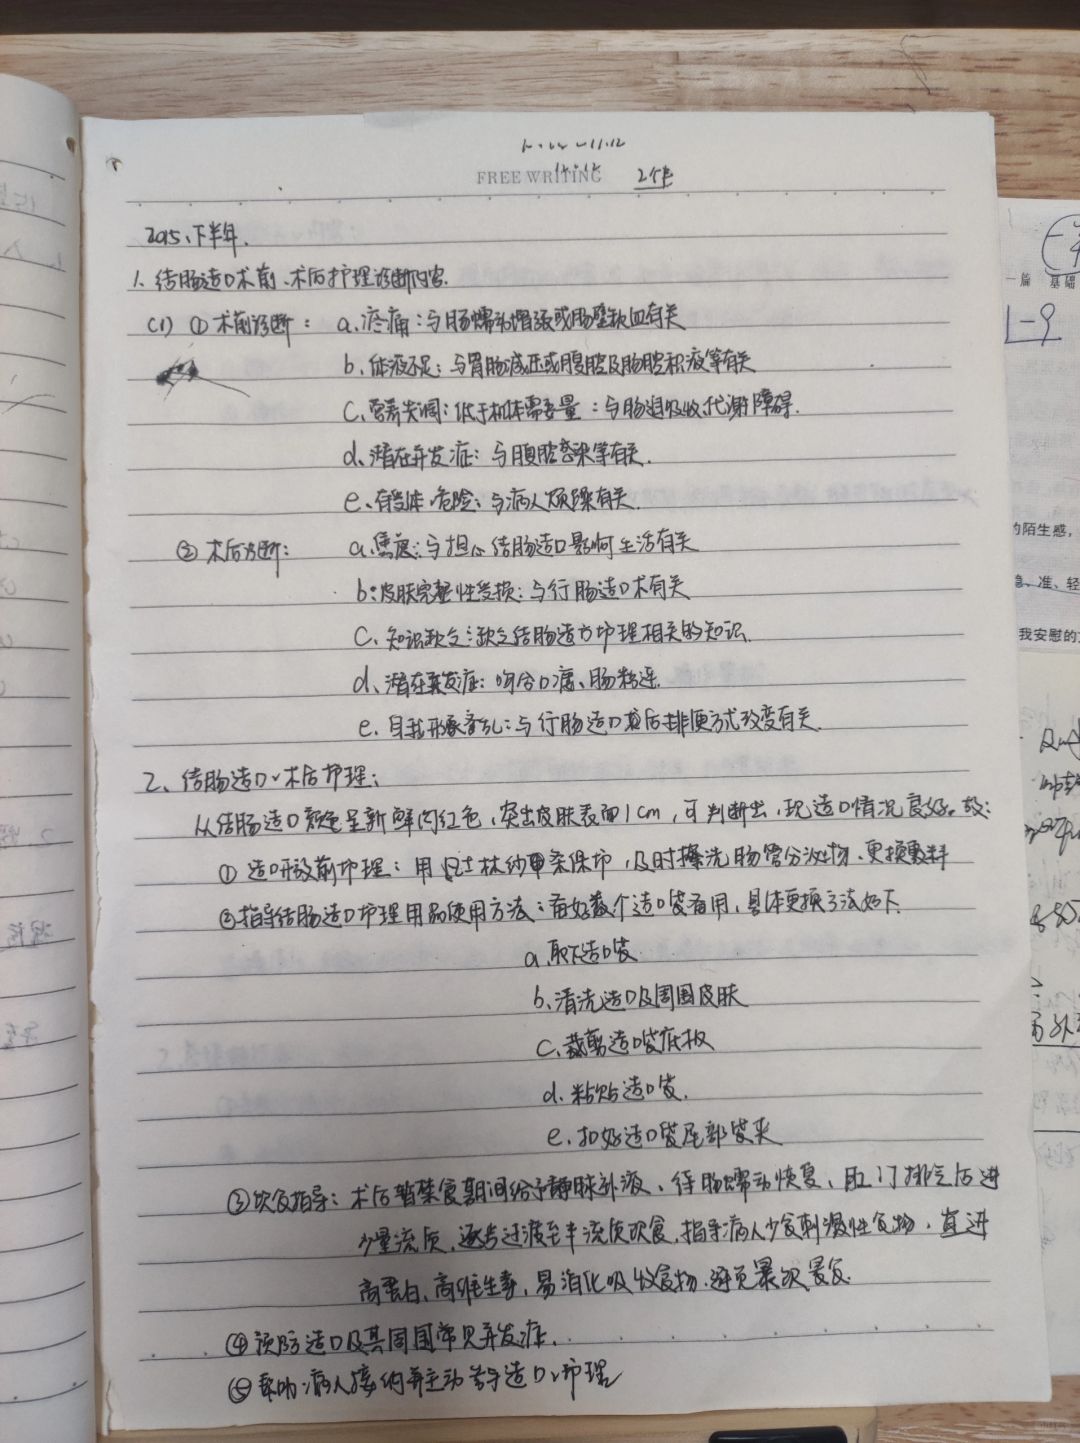 FREE WRITING
2015、下半年.
1、结肠造口术前、术后护理诊断内容.
(1) ① 术前诊断: a、疼痛:与肠蠕动增强或肠壁缺血有关
b、体液不足:与胃肠减压或腹腔及肠腔积液等有关
C、营养失调:低于机体需要量:与肠道吸收、代谢障碍.
d、潜在并发症:与腹腔感染等有关.
e、有受体危险:与病人烦躁有关.
② 术后诊断: a、焦虑:与担心结肠造口影响生活有关
b:皮肤完整性受损:与行肠造口术有关
C、知识缺乏:缺乏结肠造口护理相关的知识.
d、潜在并发症:吻合口瘘、肠粘连.
e、自我形象紊乱:与行肠造口术后排便方式改变有关.
2、结肠造口、术后护理:
从结肠造口颜色呈新鲜肉红色,突出皮肤表面1cm,可判断出,现造口情况良好。故:
① 造口开放前护理:用凡士林纱布条保护,及时擦洗肠管分泌物、更换敷料
②指导结肠造口护理用品使用方法:备好数个造口袋备用,具体更换方法如下.
a、取下造口袋
b、清洗造口及周围皮肤
C、裁剪造口袋底板
d、粘贴造口袋.
e、扣好造口袋尾部袋夹
③饮食指导:术后暂禁食期间给予静脉补液、待肠蠕动恢复,肛门排气后进
少量流质,逐步过渡至半流质饮食,指导病人少食刺激性食物,宜进
高蛋白、高维生素,易消化吸收食物.避免暴饮暴食.
④预防造口及其周围常见并发症.
⑤帮助病人接纳并主动参与造口、护理
一篇 基础
1-9
的陌生感,
稳、准、轻
我安慰的